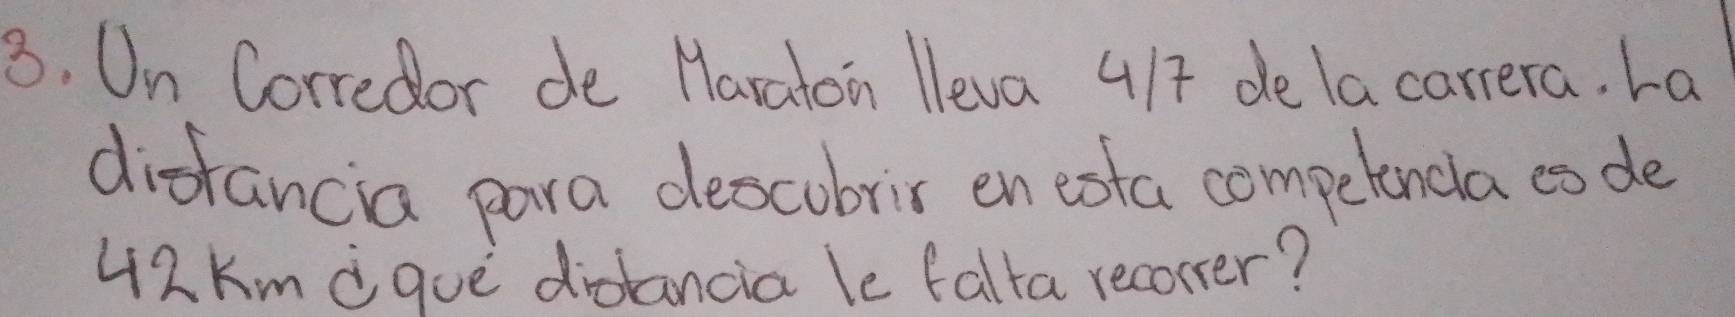 3. Un Corredor de Maratón lleva 4/7 de la carrera. La
distancia para descubrir en esta competencia es de
42 Km ¿qué distancia le falta recorrer?